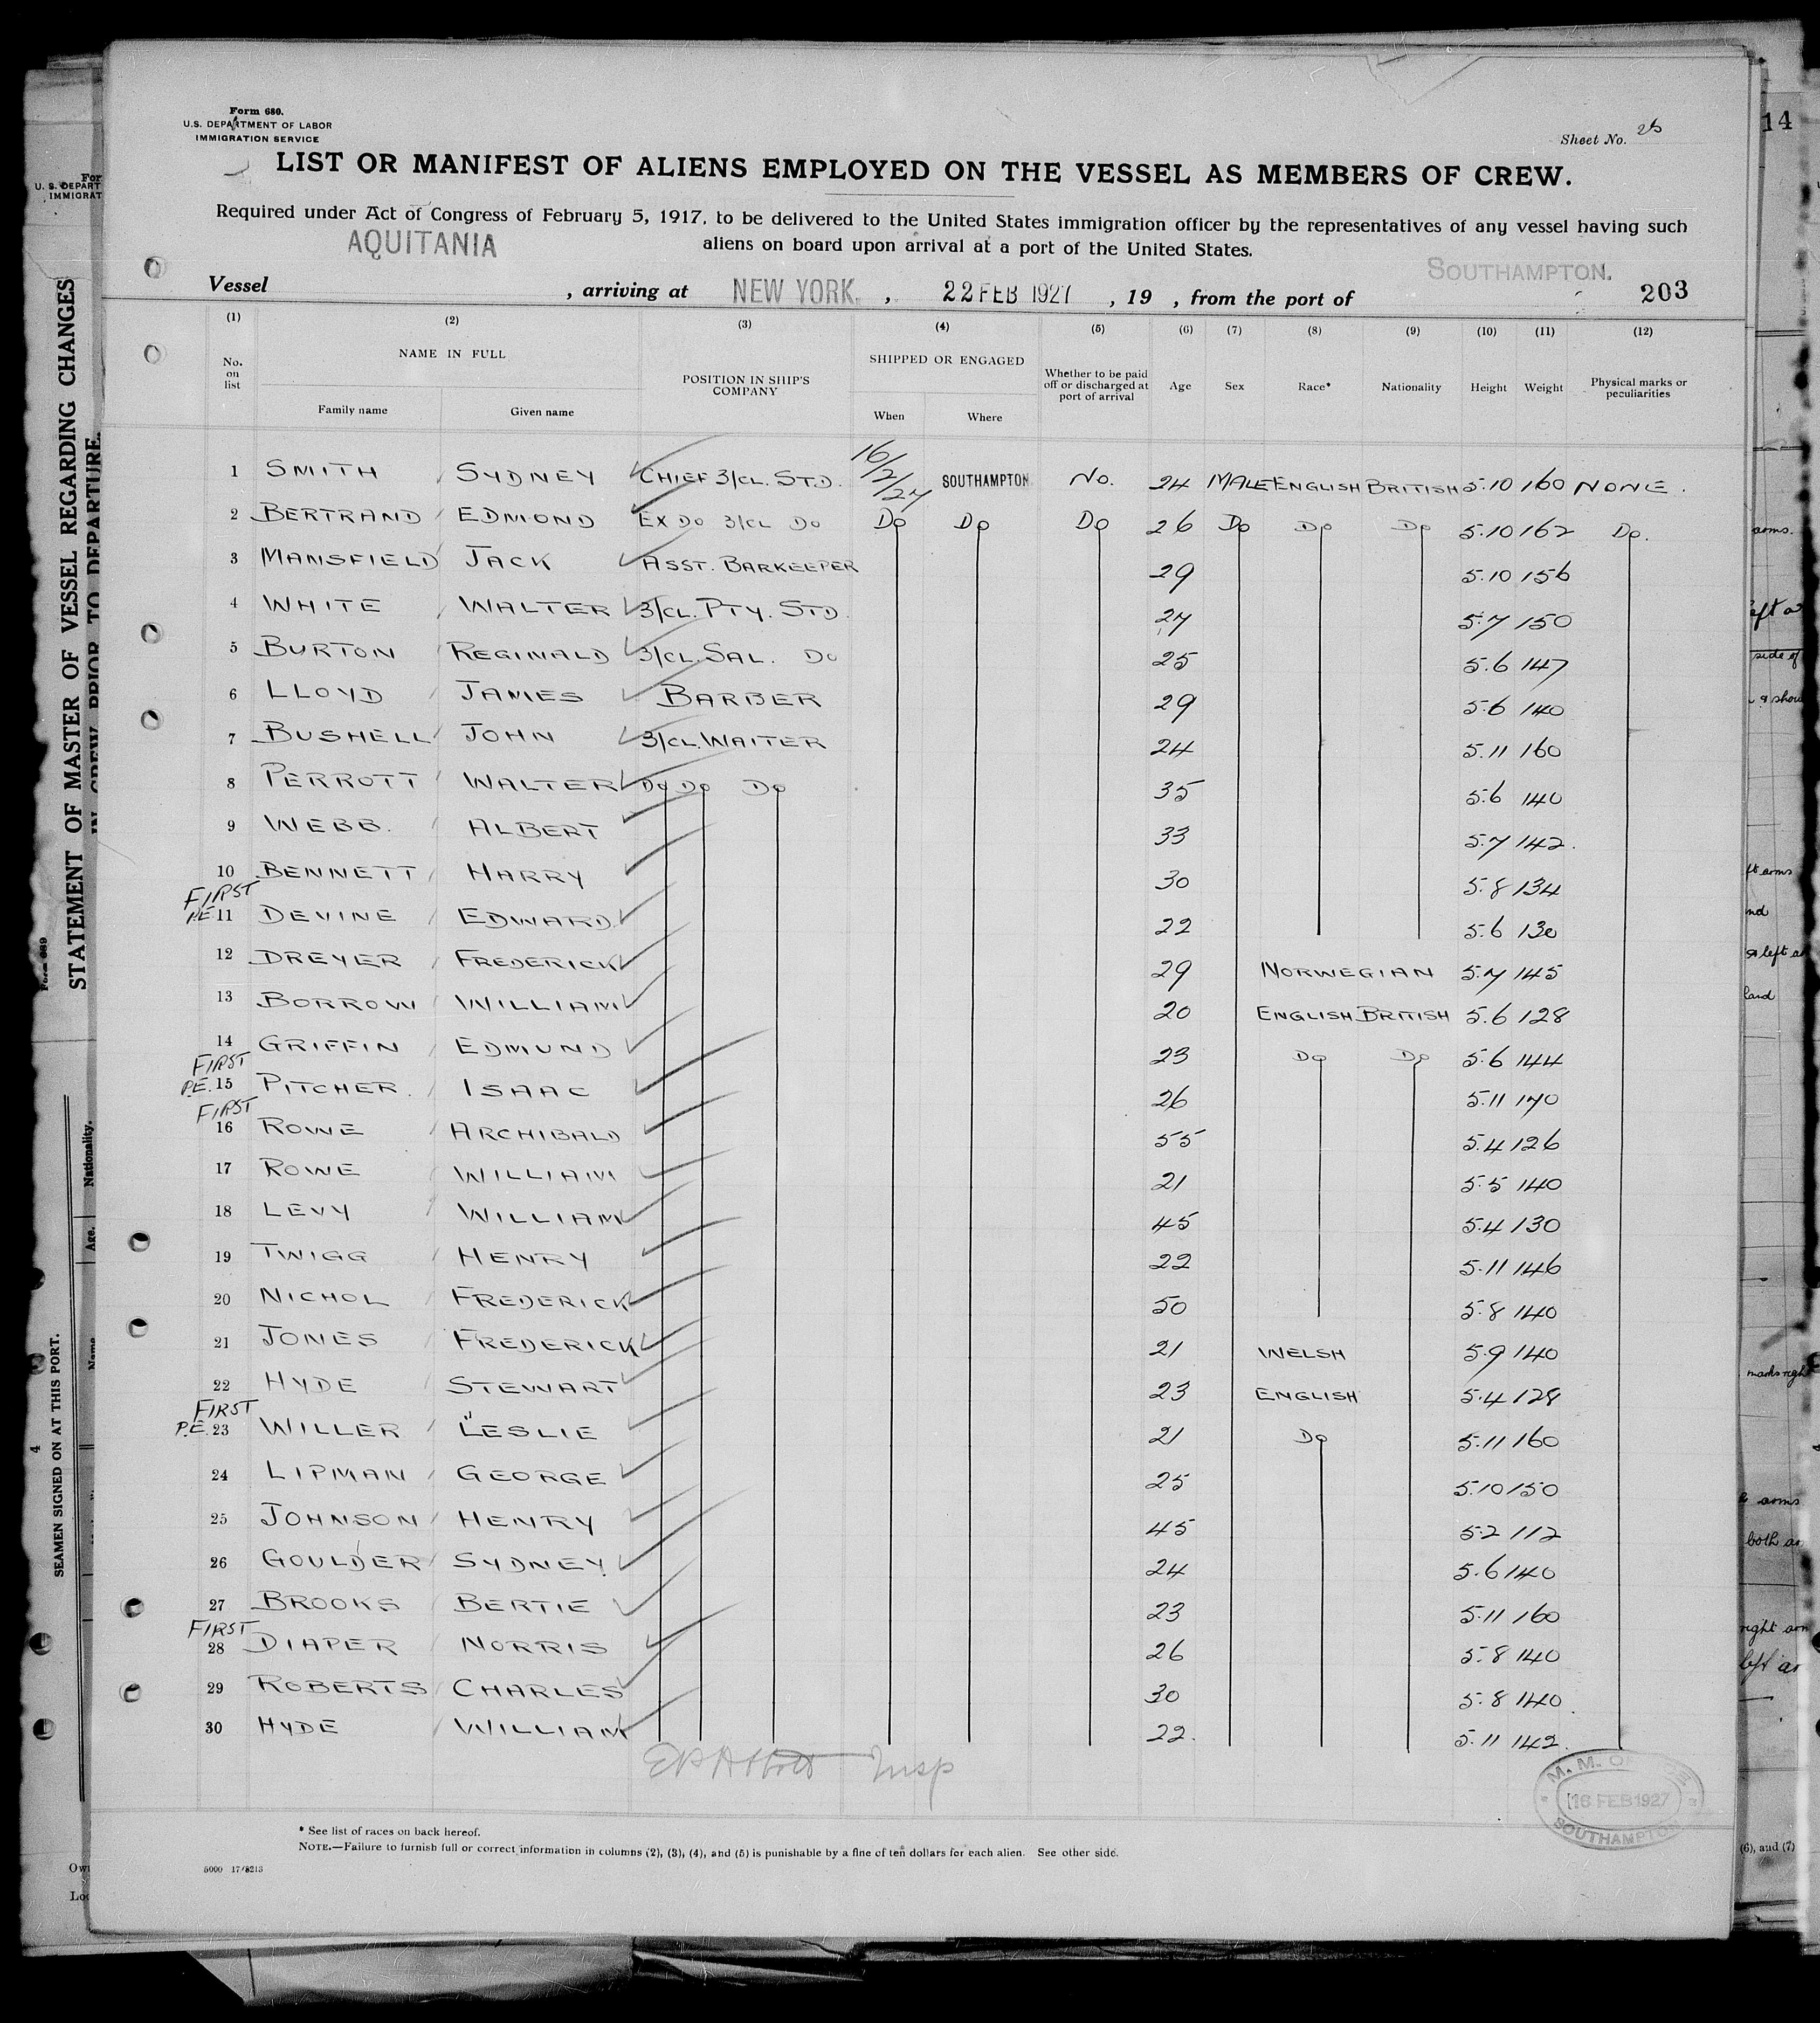 Form 680.
U.S. DEPARTMENT OF LABOR
IMMIGRATION SERVICE
Sheet No. 26
LIST OR MANIFEST OF ALIENS EMPLOYED ON THE VESSEL AS MEMBERS OF CREW.
Required under Act of Congress of February 5, 1917, to be delivered to the United States immigration officer by the representatives of any vessel having such
aliens on board upon arrival at a port of the United States.
Vessel AQUITANIA, arriving at NEW YORK, 22 FEB 1927, 19 , from the port of SOUTHAMPTON. 203
(1) (2) (3) (4) (5) (6) (7) (8) (9) (10) (11) (12)
No. on list NAME IN FULL Family name Given name POSITION IN SHIP'S COMPANY SHIPPED OR ENGAGED When Where Whether to be paid off or discharged at port of arrival Age Sex Race* Nationality Height Weight Physical marks or peculiarities
1 SMITH SYDNEY CHIEF 3/CL. STD. 16/2/27 SOUTHAMPTON No. 24 MALE ENGLISH BRITISH 5.10 160 NONE.
2 BERTRAND EDMOND EX DO 3/CL DO Do Do Do 26 Do Do Do 5.10 162 Do.
3 MANSFIELD JACK ASST. BARKEEPER 29 5.10 156
4 WHITE WALTER 3/CL. PTY. STD. 27 5.7 150
5 BURTON REGINALD 3/CL. SAL. Do 25 5.6 147
6 LLOYD JAMES BARBER 29 5.6 140
7 BUSHELL JOHN 3/CL. WAITER 24 5.11 160
8 PERROTT WALTER Do Do Do 35 5.6 140
9 WEBB. ALBERT 33 5.7 142.
10 BENNETT HARRY 30 5.8 134
FIRST
P.E. 11 DEVINE EDWARD 22 5.6 130
12 DREYER FREDERICK 29 NORWEGIAN 5.7 145
13 BORROW WILLIAM 20 ENGLISH BRITISH 5.6 128
14 GRIFFIN EDMUND 23 Do Do 5.6 144
FIRST
P.E. 15 PITCHER. ISAAC 26 5.11 170
FIRST
16 ROWE ARCHIBALD 55 5.4 126
17 ROWE WILLIAM 21 5.5 140
18 LEVY WILLIAM 45 5.4 130
19 TWIGG HENRY 22 5.11 146
20 NICHOL FREDERICK 50 5.8 140
21 JONES FREDERICK 21 WELSH 5.9 140
22 HYDE STEWART 23 ENGLISH 5.4 128
FIRST
P.E. 23 WILLER LESLIE 21 Do 5.11 160
24 LIPMAN GEORGE 25 5.10 150
25 JOHNSON HENRY 45 5.2 112
26 GOULDER SYDNEY 24 5.6 140
27 BROOKS BERTIE 23 5.11 160
FIRST
28 DIAPER NORRIS 26 5.8 140
29 ROBERTS CHARLES 30 5.8 140.
30 HYDE WILLIAM 22. 5.11 142.
Insp
M. M. SOUTHAMPTON
16 FEB 1927
* See list of races on back hereof.
NOTE.—Failure to furnish full or correct information in columns (2), (3), (4), and (5) is punishable by a fine of ten dollars for each alien. See other side.
5000 17/8213
STATEMENT OF MASTER OF VESSEL REGARDING CHANGES
IN CREW PRIOR TO DEPARTURE.
Form 689
Nationality.
Age.
Name
SEAMEN SIGNED ON AT THIS PORT.
4
14
arms.
side of
left a
land
both
right arm
(6), and (7)